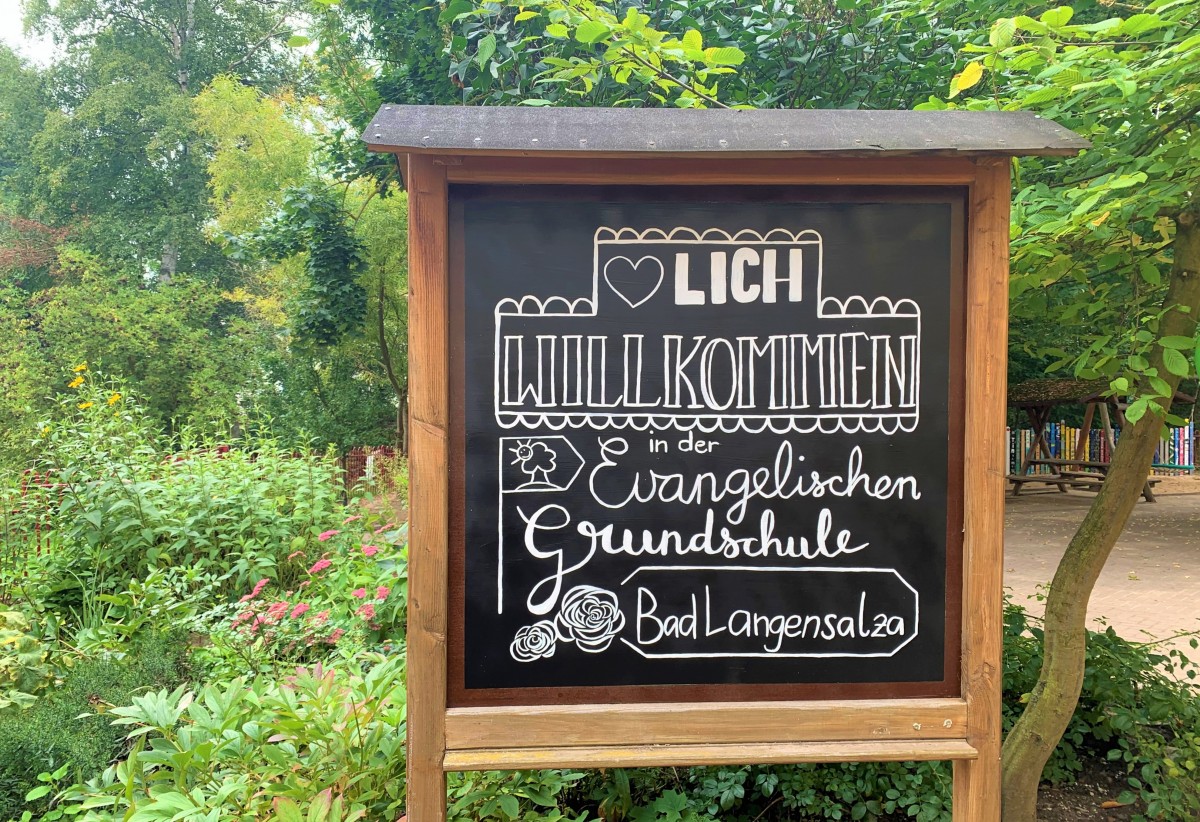 ♡LICH
WILLKOMMEN
in der
Evangelischen
Grundschule
Bad Langensalza